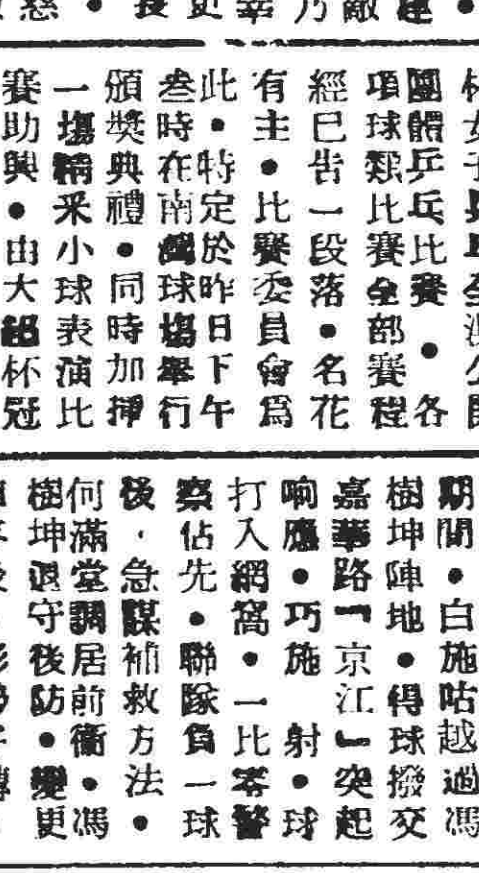 團體乒乓比賽●各
項球類比賽全部賽程
經已告一段落●名花
有主●比賽委員會爲
此●特定於昨日下午
叁時在南華球場舉行
頒獎典禮●同時加揷
一塲精采小球表演比
賽助興●由大紹杯冠
期間●白施咕越過馮
樹坤陣地●得球撥交
嘉華路「京江」突起
响應●巧施射●球
打入網窩●一比零警
察佔先●聯隊負一球
後．急謀補救方法●
何滿堂調居前衞●馮
樹坤退守後防●變更